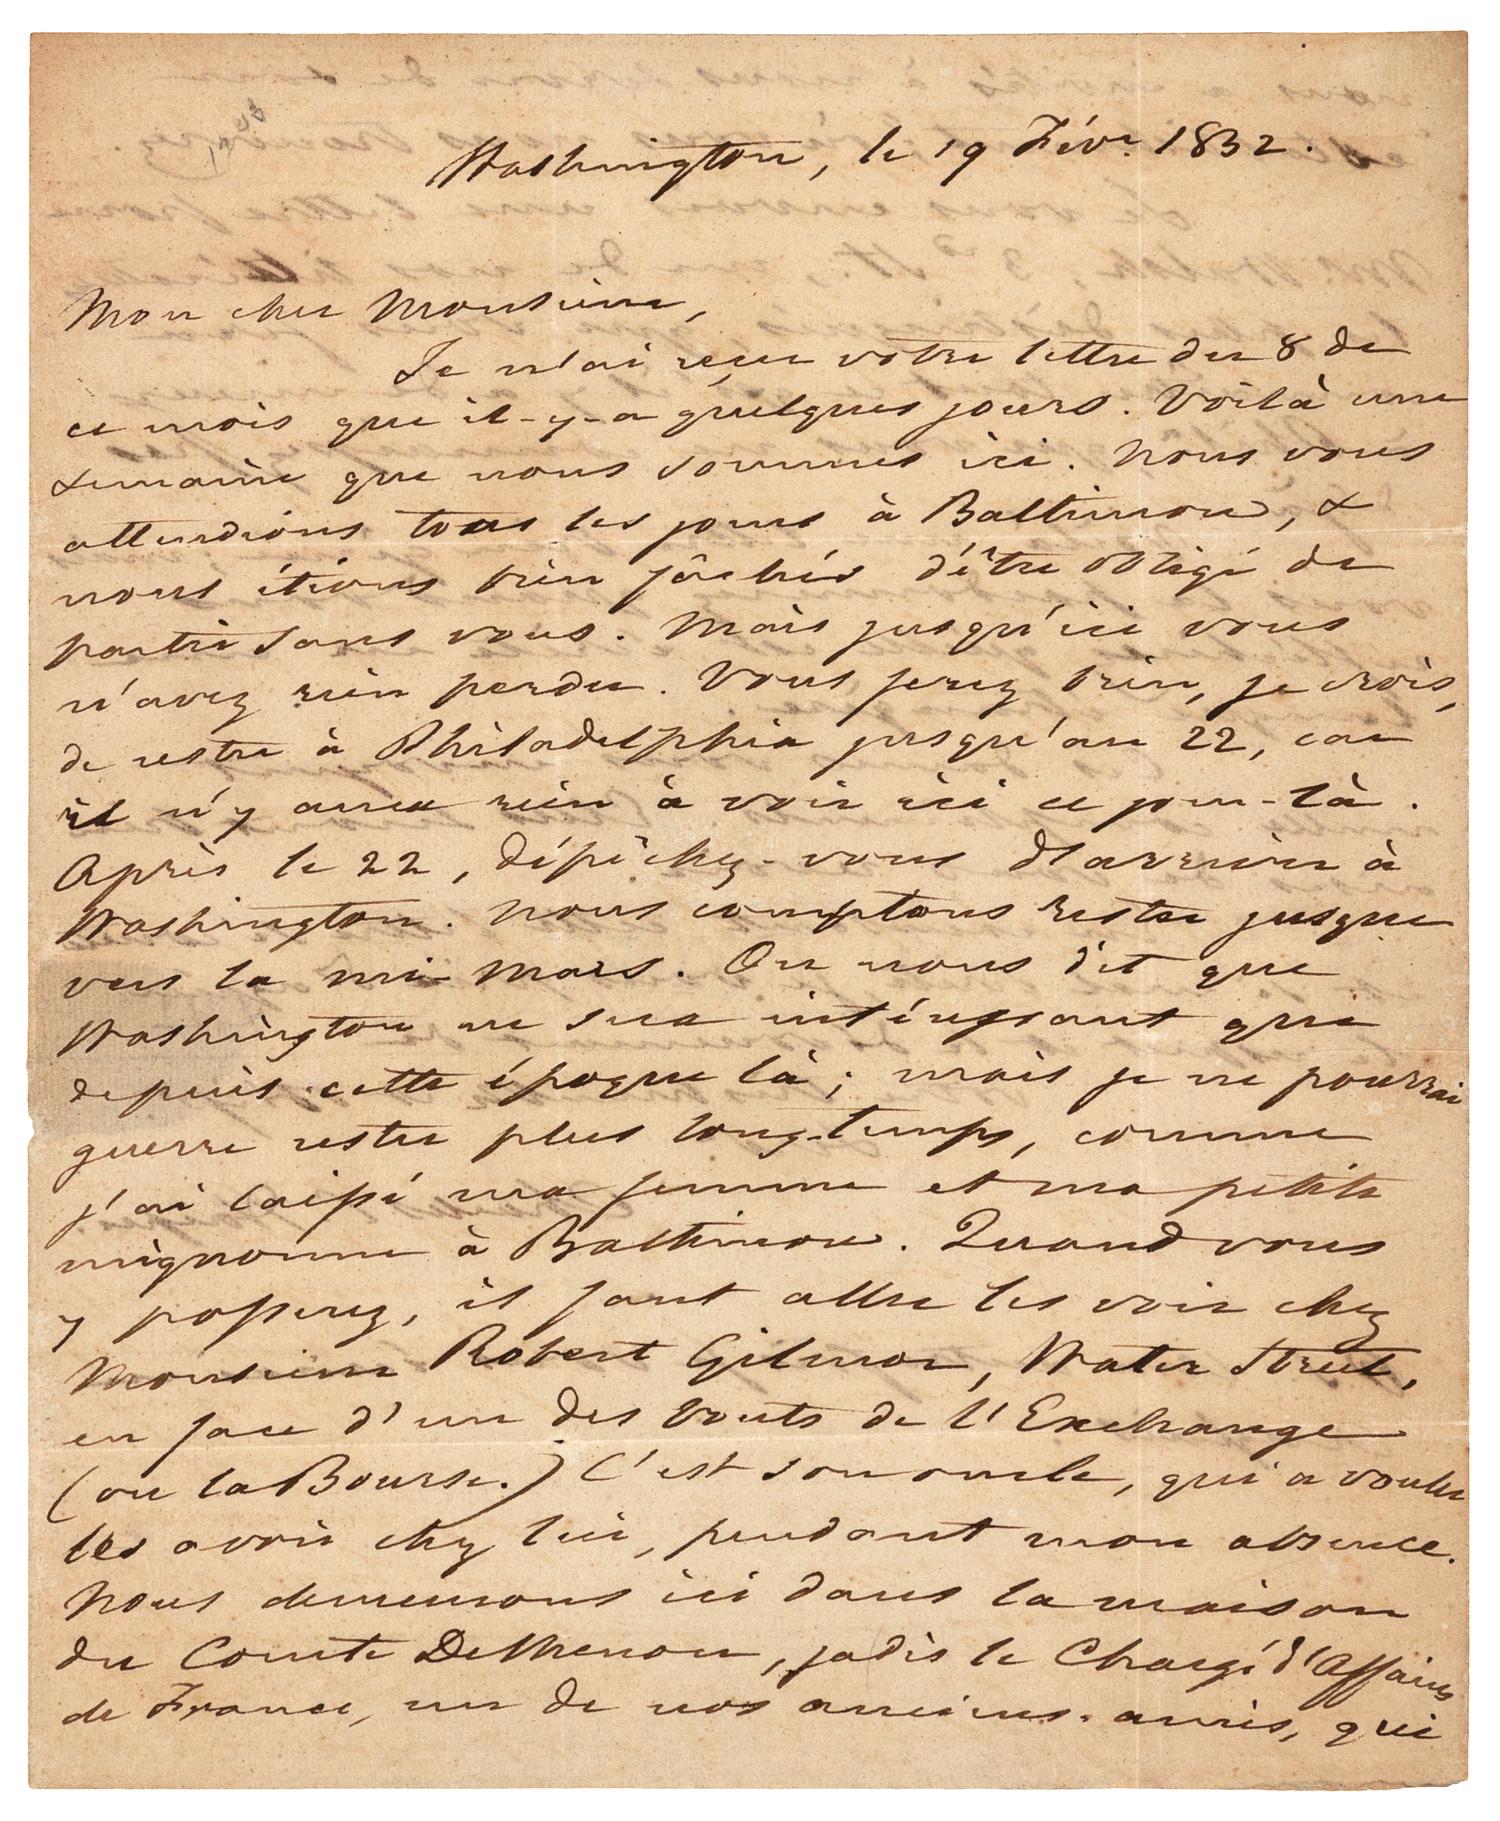 Washington, le 19 Févr. 1832.
Mon cher Monsieur,
Je n'ai reçu votre lettre du 8 de
ce mois que il-y-a quelques jours. Voilà une
semaine que nous sommes ici. Nous vous
attendions tous les jours à Baltimore, &
nous étions bien fâchés d'être obligé de
partir sans vous. Mais jusqu'ici vous
n'avez rien perdu. Vous ferez bien, je crois,
de rester à Philadelphia jusqu'au 22, car
il n'y aura rien à voir ici ce jour-là.
Après le 22, dépêchez-vous d'arriver à
Washington. Nous comptons rester jusque
vers la mi-Mars. On nous dit que
Washington ne sera intéressant que
depuis cette époque là; mais je ne pourrai
guerre rester plus long-temps, comme
j'ai laissé ma femme et ma petite
mignonne à Baltimore. Quand vous
y passerez, il faut aller les voir chez
Monsieur Robert Gilmor, Water Street,
en face d'un des bouts de l'Exchange
(ou la Bourse.) C'est son oncle, qui a voulu
les avoir chez lui, pendant mon absence.
Nous demeurons ici dans la maison
du Comte DeMenou, jadis le Chargé d'Affaires
de France, un de nos anciens amis, qui